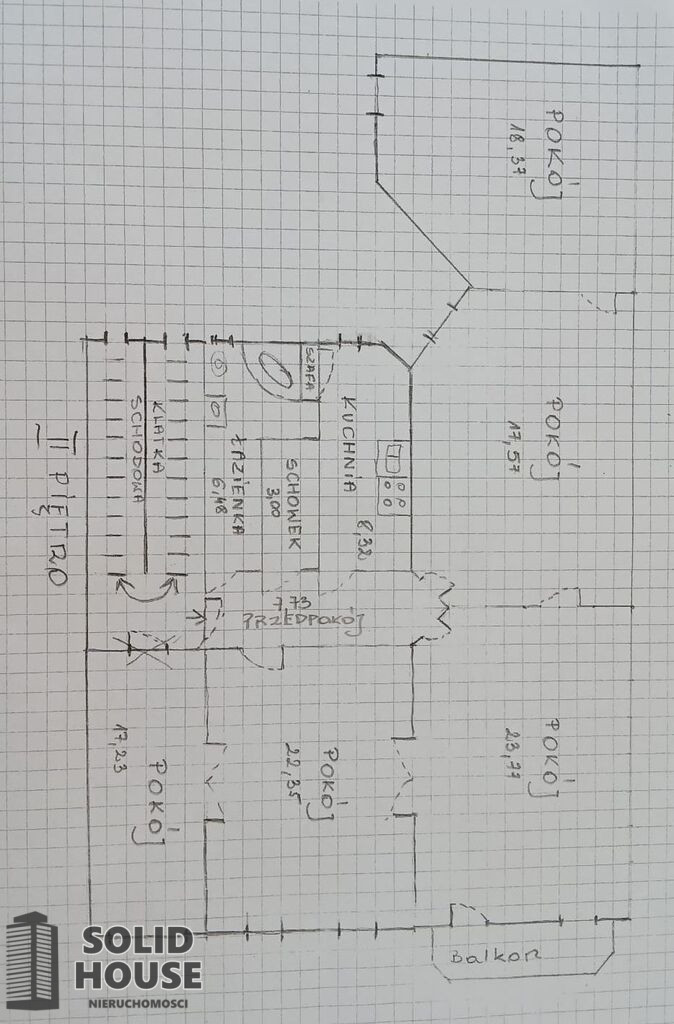 POKÓJ
18,37
POKÓJ
17,57
POKÓJ
23,77
SZAFA
KUCHNIA
8,32
SCHOWEK
3,00
ŁAZIENKA
6,48
KLATKA
SCHODOWA
7,73
PRZEDPOKÓJ
POKÓJ
22,35
POKÓJ
17,23
Balkon
II PIĘTRO
SOLID
HOUSE
NIERUCHOMOŚCI